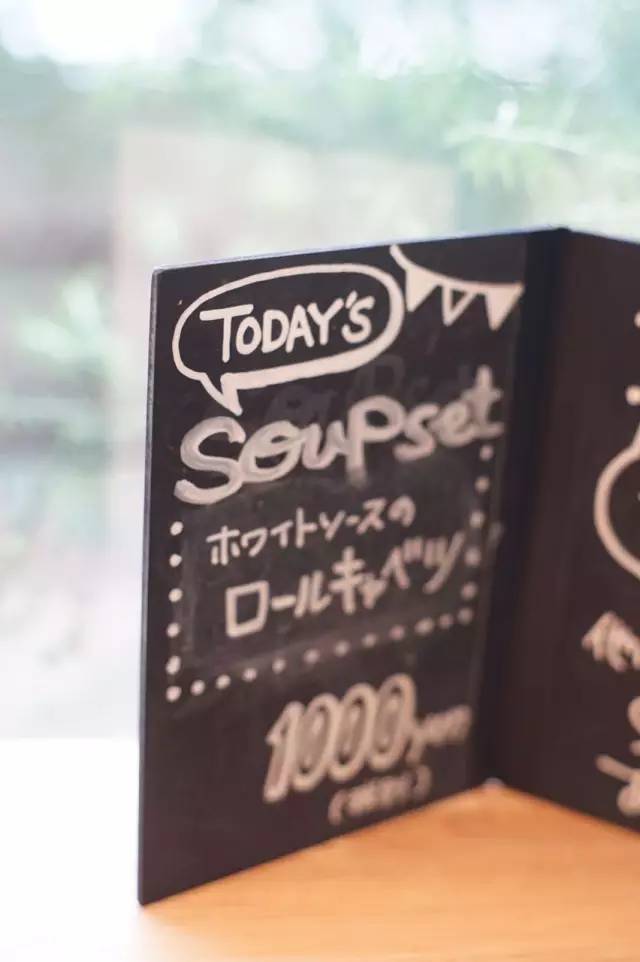 TODAY'S
Soupset
ホワイトソースの
ロールキャベツ
1000yen
(税別)